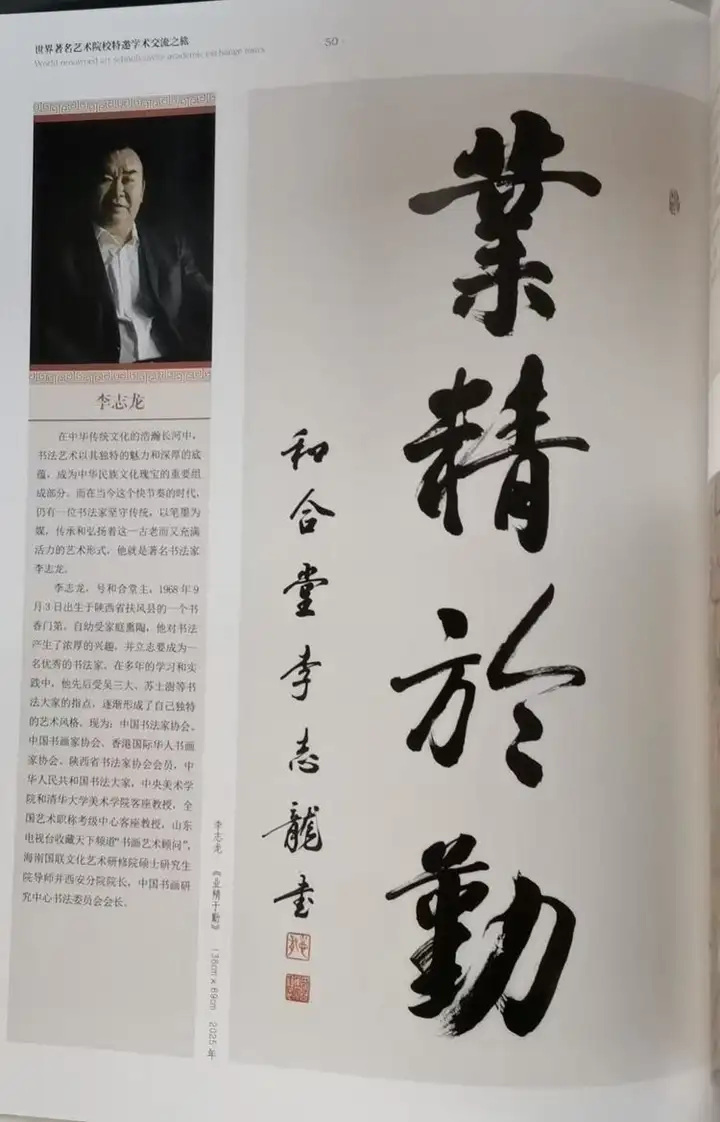 世界著名艺术院校特邀学术交流之旅
50
李志龙
在中华传统文化的浩瀚长河中，
书法艺术以其独特的魅力和深厚的底
蕴，成为中华民族文化瑰宝的重要组
成部分。而在当今这个快节奏的时代，
仍有一位书法家坚守传统，以笔墨为
媒，传承和弘扬着这一古老而又充满
活力的艺术形式，他就是著名书法家
李志龙。
李志龙，号和合堂主，1968年9
月3日出生于陕西省扶风县的一个书
香门第。自幼受家庭熏陶，他对书法
产生了浓厚的兴趣，并立志要成为一
名优秀的书法家。在多年的学习和实
践中，他先后受吴三大、苏士澍等书
法大家的指点，逐渐形成了自己独特
的艺术风格。现为：中国书法家协会、
中国书画家协会、香港国际华人书画
家协会、陕西省书法家协会会员，中
华人民共和国书法大家，中央美术学
院和清华大学美术学院客座教授，全
国艺术职称考级中心客座教授，山东
电视台收藏天下频道“书画艺术顾问”，
海南国联文化艺术研修院硕士研究生
院导师并西安分院院长，中国书画研
究中心书法委员会会长。
業精於勤
和合堂李志龍书
李志龙 《业精于勤》 138cm×69cm 2025年